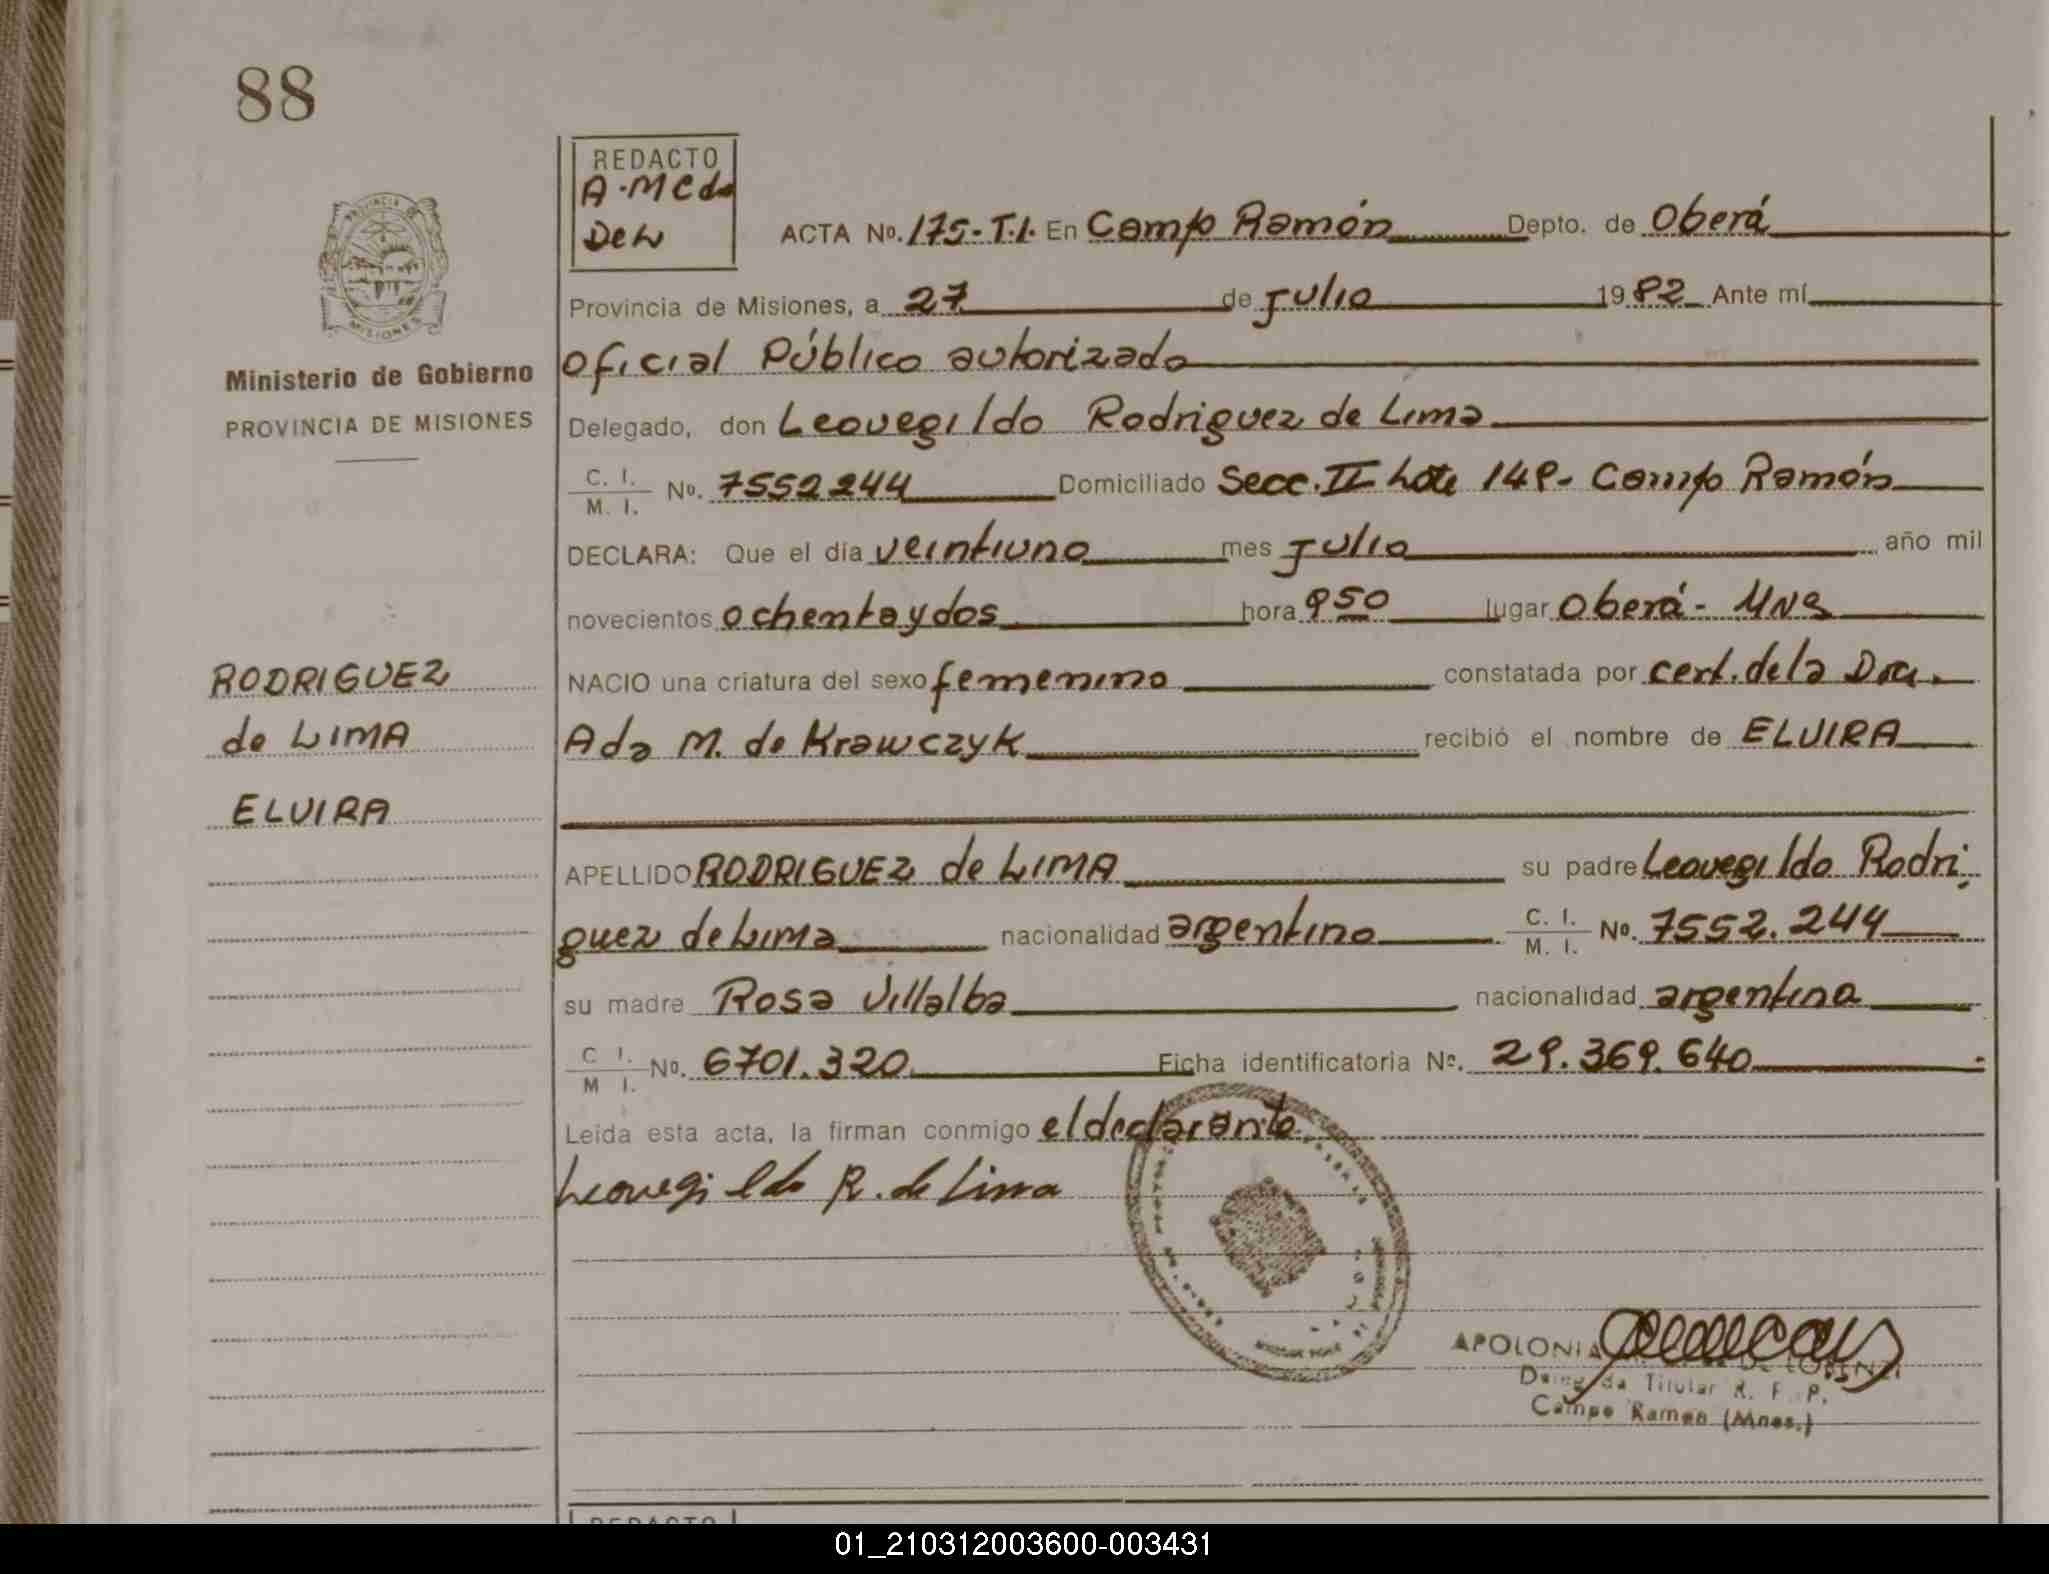 88
REDACTO
A. M C de
De L
ACTA Nº. 175-T.I. En Campo Ramón Depto. de Oberá
Provincia de Misiones, a 27 de Julio 1982 Ante mí
Oficial Público autorizado
Ministerio de Gobierno
PROVINCIA DE MISIONES
Delegado, don Leovegildo Rodriguez de Lima
C. I. / M. I. Nº. 7552244 Domiciliado Secc. II Lote 148- Campo Ramón
DECLARA: Que el día veintiuno mes Julio año mil
novecientos ochentaydos hora 850 lugar Oberá - Mns
RODRIGUEZ
de LIMA
ELVIRA
NACIO una criatura del sexo femenino constatada por cert. de la Dra.
Ada M. de Krawczyk recibió el nombre de ELVIRA
APELLIDO RODRIGUEZ de LIMA su padre Leovegildo Rodri
guez de Lima nacionalidad argentino C. I. / M. I. Nº. 7552.244
su madre Rosa Villalba nacionalidad argentina
C I. / M I. Nº. 6701.320 Ficha identificatoria Nº. 29.369.640
Leída esta acta, la firman conmigo el declarante
Leovegildo R. de Lima
APOLONIA DE LORENZI
Titular R. P. P.
Campo Ramon (Mnes.)
REDACTO
01_210312003600-003431